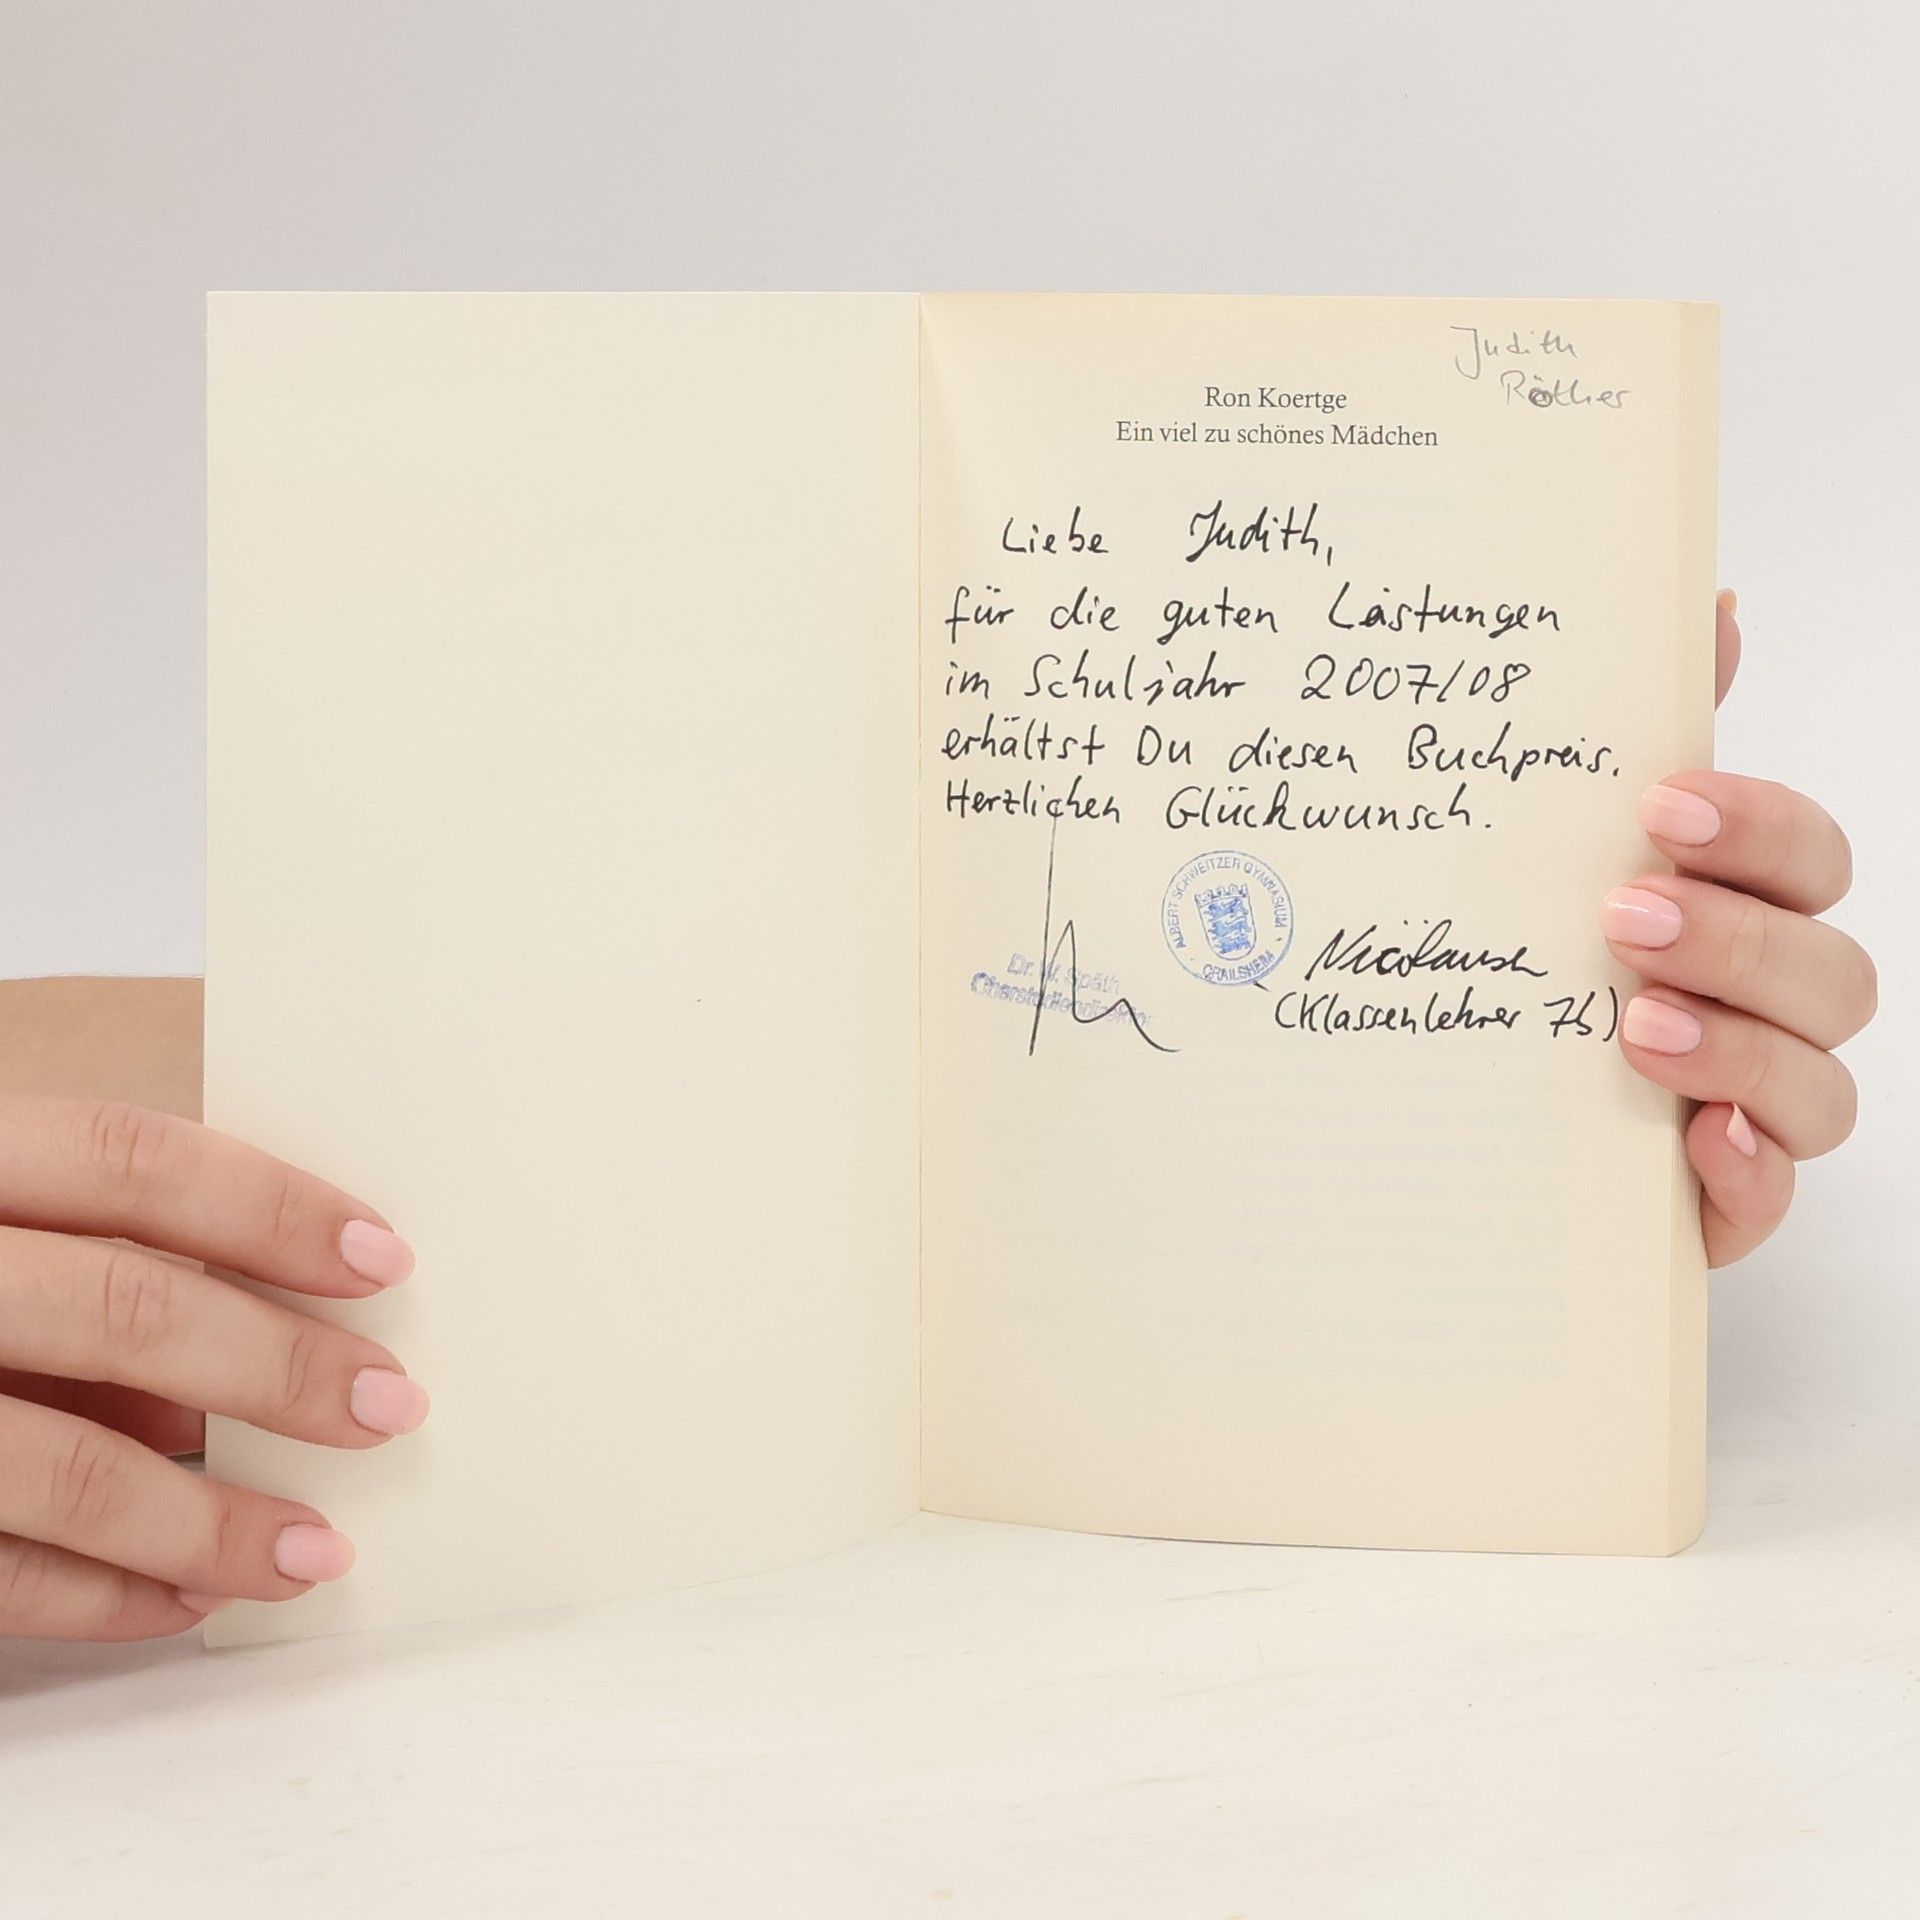 Judith
Röther
Ron Koertge
Ein viel zu schönes Mädchen
Liebe Judith,
für die guten Leistungen
im Schuljahr 2007/08
erhältst Du diesen Buchpreis.
Herzlichen Glückwunsch.
ALBERT SCHWEITZER GYMNASIUM
CRAILSHEIM
Dr. W. Späth
Oberstudiendirektor
(Klassenlehrer 7b)